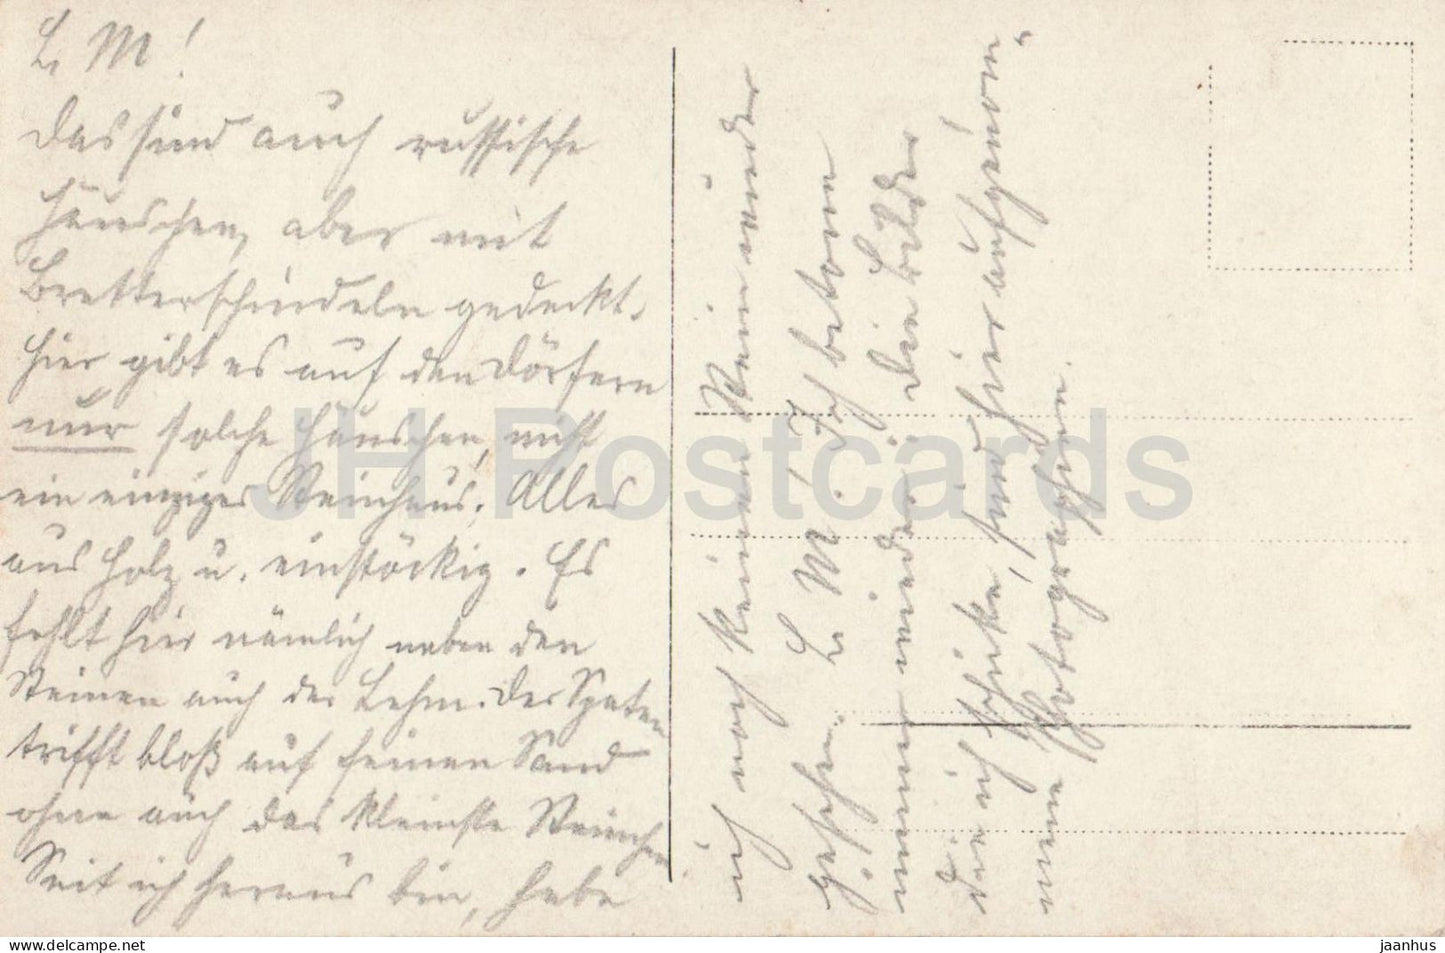 L. M!
Das sind auch russische
Häuschen, aber mit
Bretterschindeln gedeckt.
Hier gibt es auf den Dörfern
nur solche Häuschen, nicht
ein einziges Steinhaus. Alles
aus Holz u. einstöckig. Es
fehlt hier nämlich neben den
Steinen auch der Lehm. Der Spaten
trifft bloß auf feinen Sand
ohne auch das kleinste Steinchen
Seit ich heraus bin, habe
ich noch keinen Stein wieder
gesehen. L. M.! Ich betone
immer wieder: die Bilder
die ich schicke, sind hier aufgenom"
men Photographien.
JH Postcards
www.delcampe.net
jaanhus